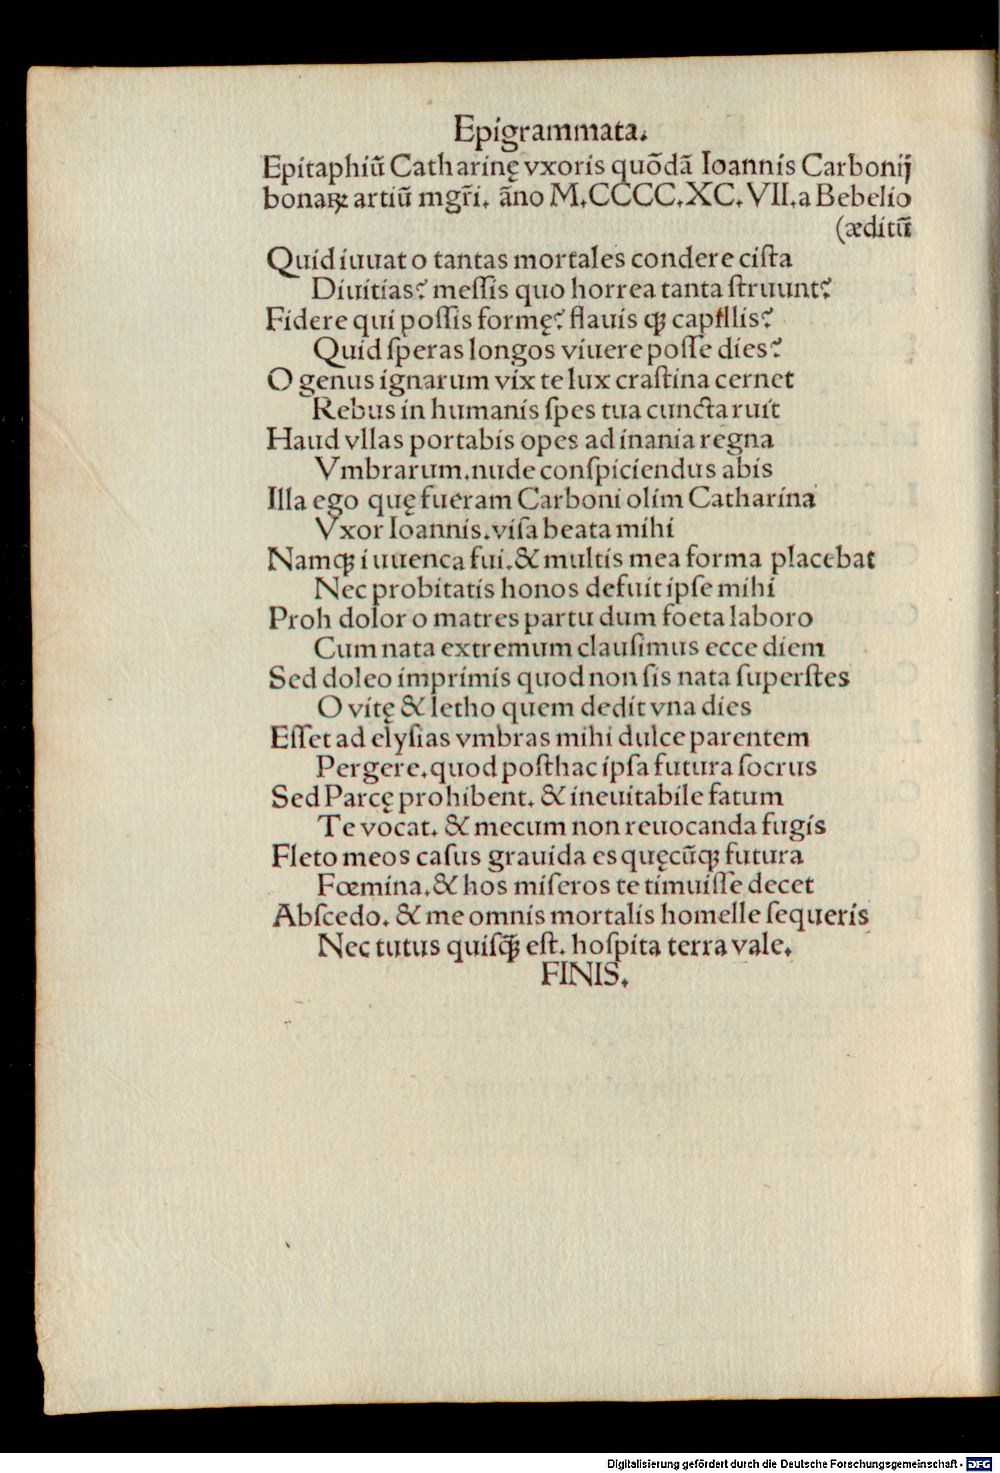 Epigrammata.
Epitaphiū Catharinę vxoris quōdā Ioannis Carbonij
bonaꝝ artiū mgr̄i. āno M.CCCC.XC.VII.a Bebelio
(æditū
Quid iuuat o tantas mortales condere ciſta
Diuitias? meſſis quo horrea tanta ſtruunt?
Fidere qui poſſis formę? flauis qꝫ capillis?
Quid ſperas longos viuere poſſe dies?
O genus ignarum vix te lux craſtina cernet
Rebus in humanis ſpes tua cuncta ruit
Haud vllas portabis opes ad inania regna
Vmbrarum.nude conſpiciendus abis
Illa ego quę fueram Carboni olim Catharina
Vxor Ioannis.viſa beata mihi
Namqꝫ iuuenca fui.& multis mea forma placebat
Nec probitatis honos defuit ipſe mihi
Proh dolor o matres partu dum foeta laboro
Cum nata extremum clauſimus ecce diem
Sed doleo imprimis quod non ſis nata ſuperſtes
O vitę & letho quem dedit vna dies
Eſſet ad elyſias vmbras mihi dulce parentem
Pergere.quod poſthac ipſa futura ſocrus
Sed Parcę prohibent. & ineuitabile fatum
Te vocat. & mecum non reuocanda fugis
Fleto meos caſus grauida es quęcūqꝫ futura
Fœmina.& hos miſeros te timuiſſe decet
Abſcedo. & me omnis mortalis homelle ſequeris
Nec tutus quiſꝗ̄ eſt. hoſpita terra vale.
FINIS.
Digitalisierung gefördert durch die Deutsche Forschungsgemeinschaft - DFG